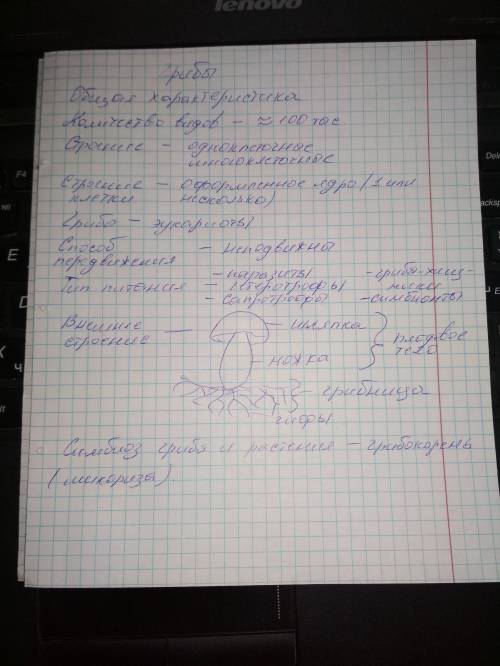 lenovo
Грибы
Общая характеристика
Количество видов – ≈ 100 тыс
Строение – одноклеточные
многоклеточные
Строение – оформленное ядро (1 или
клетки несколько)
Грибы – эукариоты
Способ – неподвижны
передвижения
– паразиты – грибы-хищ-
Тип питания – гетеротрофы ники
– сапротрофы – симбионты
Внешнее – шляпка
строение плодовое
тело
ножка
грибница
гифы
Симбиоз гриба и растения – грибокорень
(микориза).